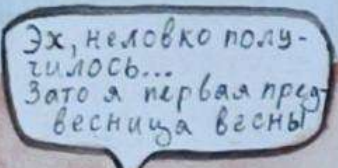 Эх, неловко полу-
чилось...
Зато я первая пред-
весница весны